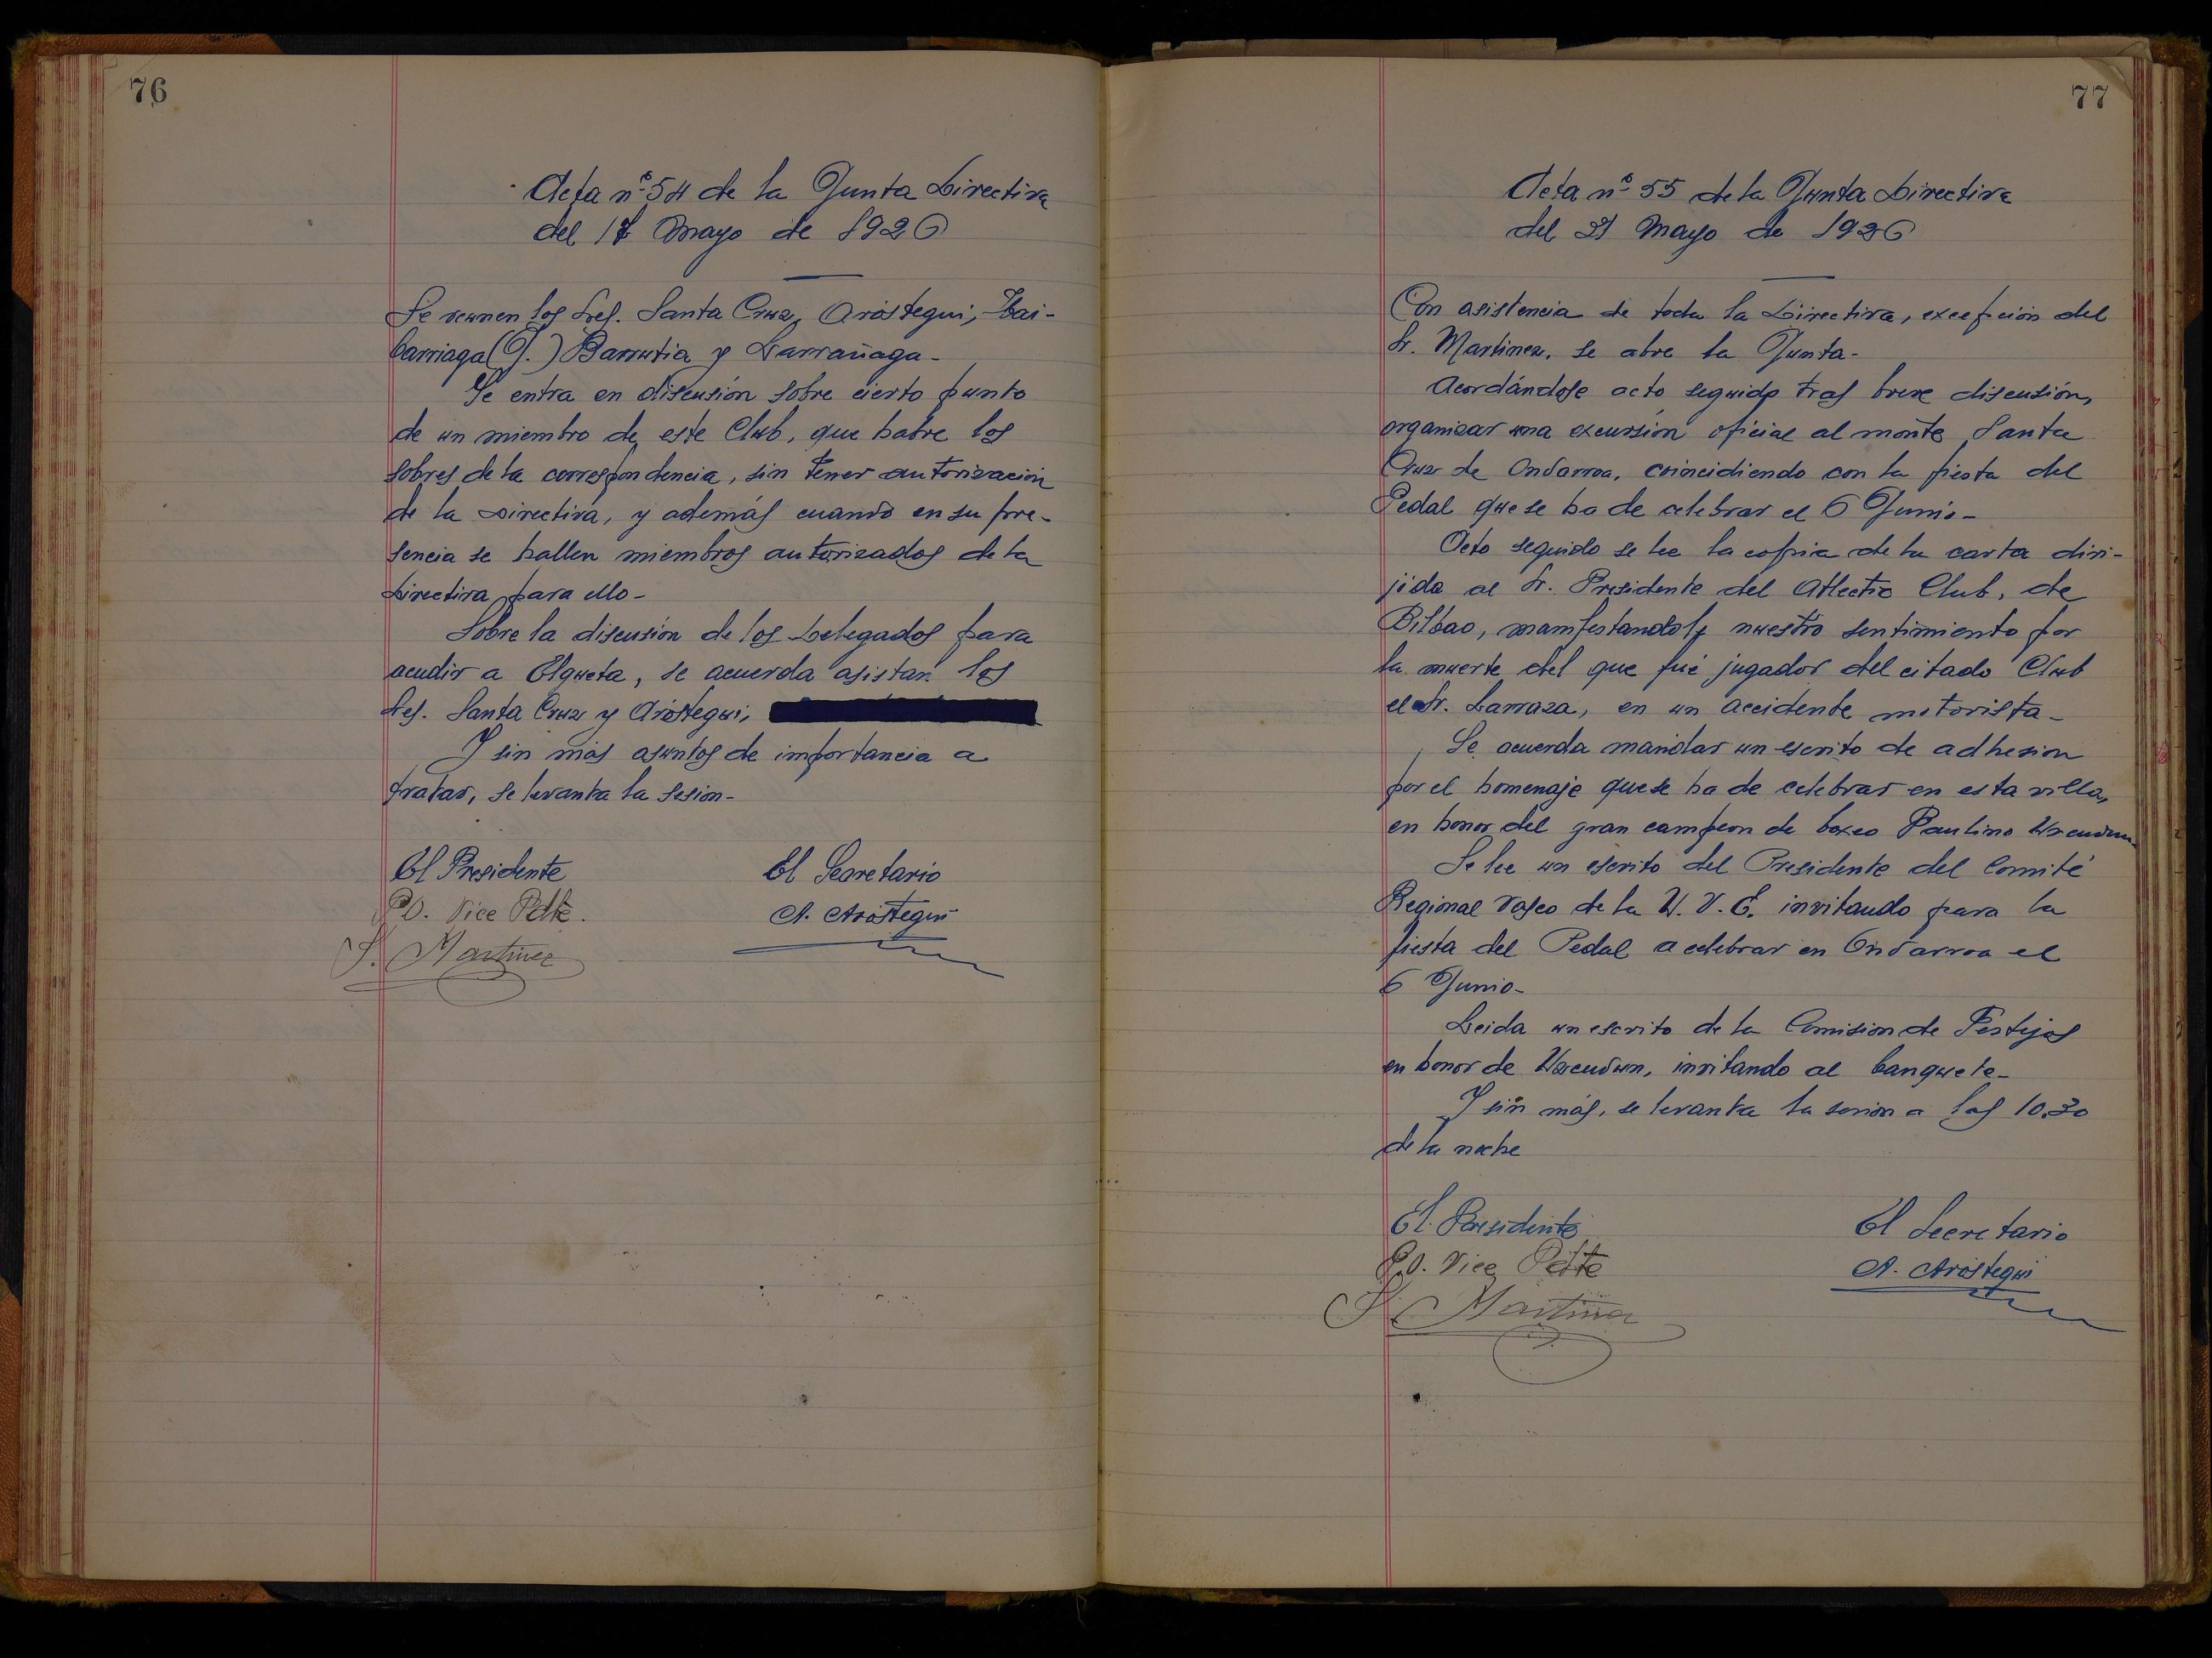 76
Acta nº 54 de la Junta Directiva
del 17 Mayo de 1926
Se reunen los Sres. Santa Cruz, Aróstegui, Ibai-
barriaga (J.) Barrutia y Larrañaga-
Se entra en discusión sobre cierto punto
de un miembro de este Club, que habre los
sobres de la correspondencia, sin tener autorización
de la Directiva, y además cuando en su pre-
sencia se hallen miembros autorizados de la
Directiva para ello-
Sobre la discusión de los Delegados para
acudir a Elgueta, se acuerda asistan los
Sres. Santa Cruz y Aróstegui,
Y sin más asuntos de importancia a
tratar, se levanta la sesion-
El Presidente
P.O. Vice Pdte.
S. Martinez
El Secretario
A. Aróstegui
77
Acta nº 55 de la Junta Directiva
del 21 Mayo de 1926
Con asistencia de toda la Directiva, excepción del
Sr. Martinez, se abre la Junta-
Acordándose acto seguido tras breve discusión,
organizar una excursión oficial al monte Santa
Cruz de Ondarroa, coincidiendo con la fiesta del
Pedal que se ha de celebrar el 6 Junio-
Acto seguido se lee la copia de la carta diri-
jida al Sr. Presidente del Atlectic Club, de
Bilbao, manifestandole nuestro sentimiento por
la muerte del que fué jugador del citado Club
el Sr. Larraza, en un accidente motorista-
Se acuerda mandar un escrito de adhesion
por el homenaje que se ha de celebrar en esta villa,
en honor del gran campeon de boxeo Paulino Uzcudun
Se lee un escrito del Presidente del Comité
Regional Vasco de la U. V. E. invitando para la
fiesta del Pedal a celebrar en Ondarroa el
6 Junio-
Leida un escrito de la Comision de Festejos
en honor de Uzcudun, invitando al banquete-
Y sin más, se levanta la sesion a las 10.30
de la noche
El Presidente
P.O. Vice Pdte
S. Martinez
El Secretario
A. Aróstegui